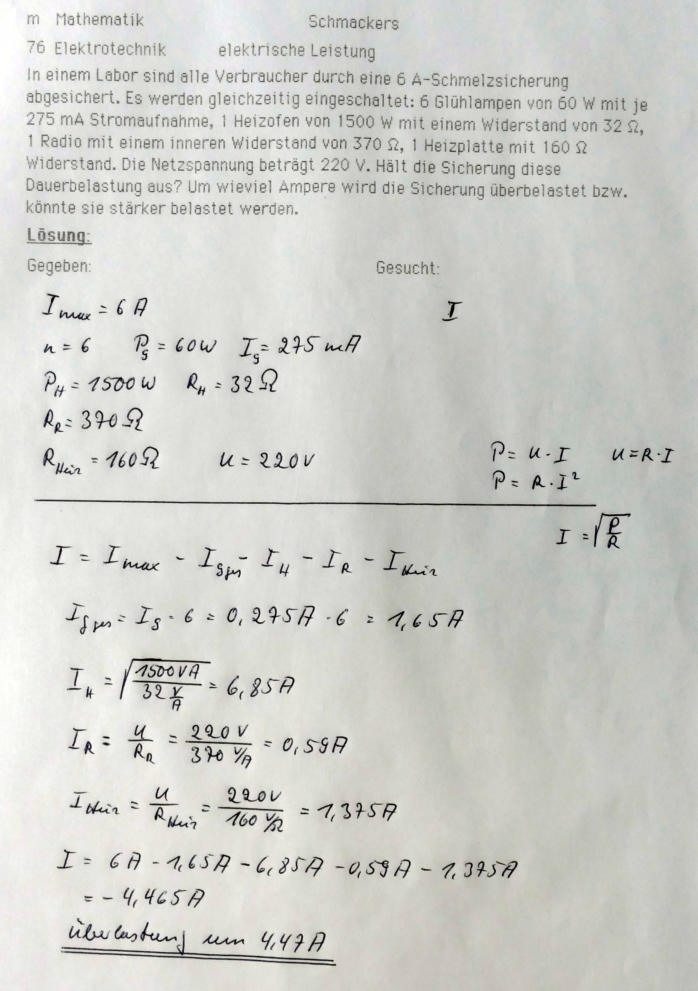 m Mathematik Schmackers
76 Elektrotechnik elektrische Leistung
In einem Labor sind alle Verbraucher durch eine 6 A-Schmelzsicherung
abgesichert. Es werden gleichzeitig eingeschaltet: 6 Glühlampen von 60 W mit je
275 mA Stromaufnahme, 1 Heizofen von 1500 W mit einem Widerstand von 32 Ω,
1 Radio mit einem inneren Widerstand von 370 Ω, 1 Heizplatte mit 160 Ω
Widerstand. Die Netzspannung beträgt 220 V. Hält die Sicherung diese
Dauerbelastung aus? Um wieviel Ampere wird die Sicherung überbelastet bzw.
könnte sie stärker belastet werden.
Lösung:
Gegeben: Gesucht:
I max = 6 A I
n = 6 Pg = 60W Ig = 275 mA
PH = 1500W RH = 32Ω
RR = 370Ω
RHeiz = 160Ω U = 220V P = U · I U = R · I
P = R · I²
I = √P/R
I = I max - Ig ges - IH - IR - IHeiz
Ig ges = Ig · 6 = 0,275A · 6 = 1,65A
IH = √1500VA / 32 V/A = 6,85A
IR = U/RR = 220V / 370 V/A = 0,59A
IHeiz = U/RHeiz = 220V / 160 V/Ω = 1,375A
I = 6A - 1,65A - 6,85A - 0,59A - 1,375A
= - 4,465A
überlastung um 4,47A